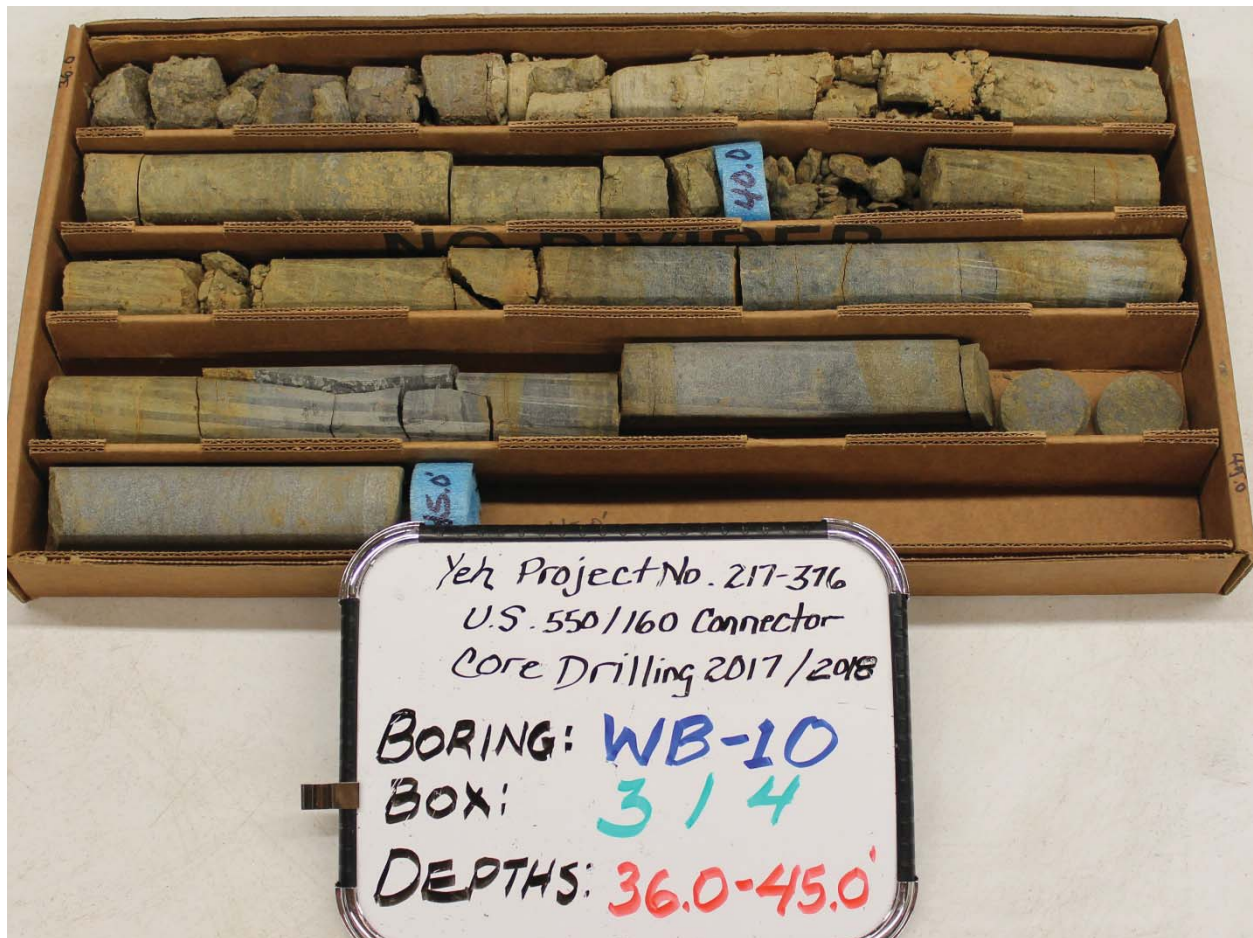 40.0
NO DIVIDER
45.0'
45.0
Yeh Project No. 217-376
U.S. 550/160 Connector
Core Drilling 2017/2018
BORING: WB-10
BOX: 3/4
DEPTHS: 36.0-45.0'